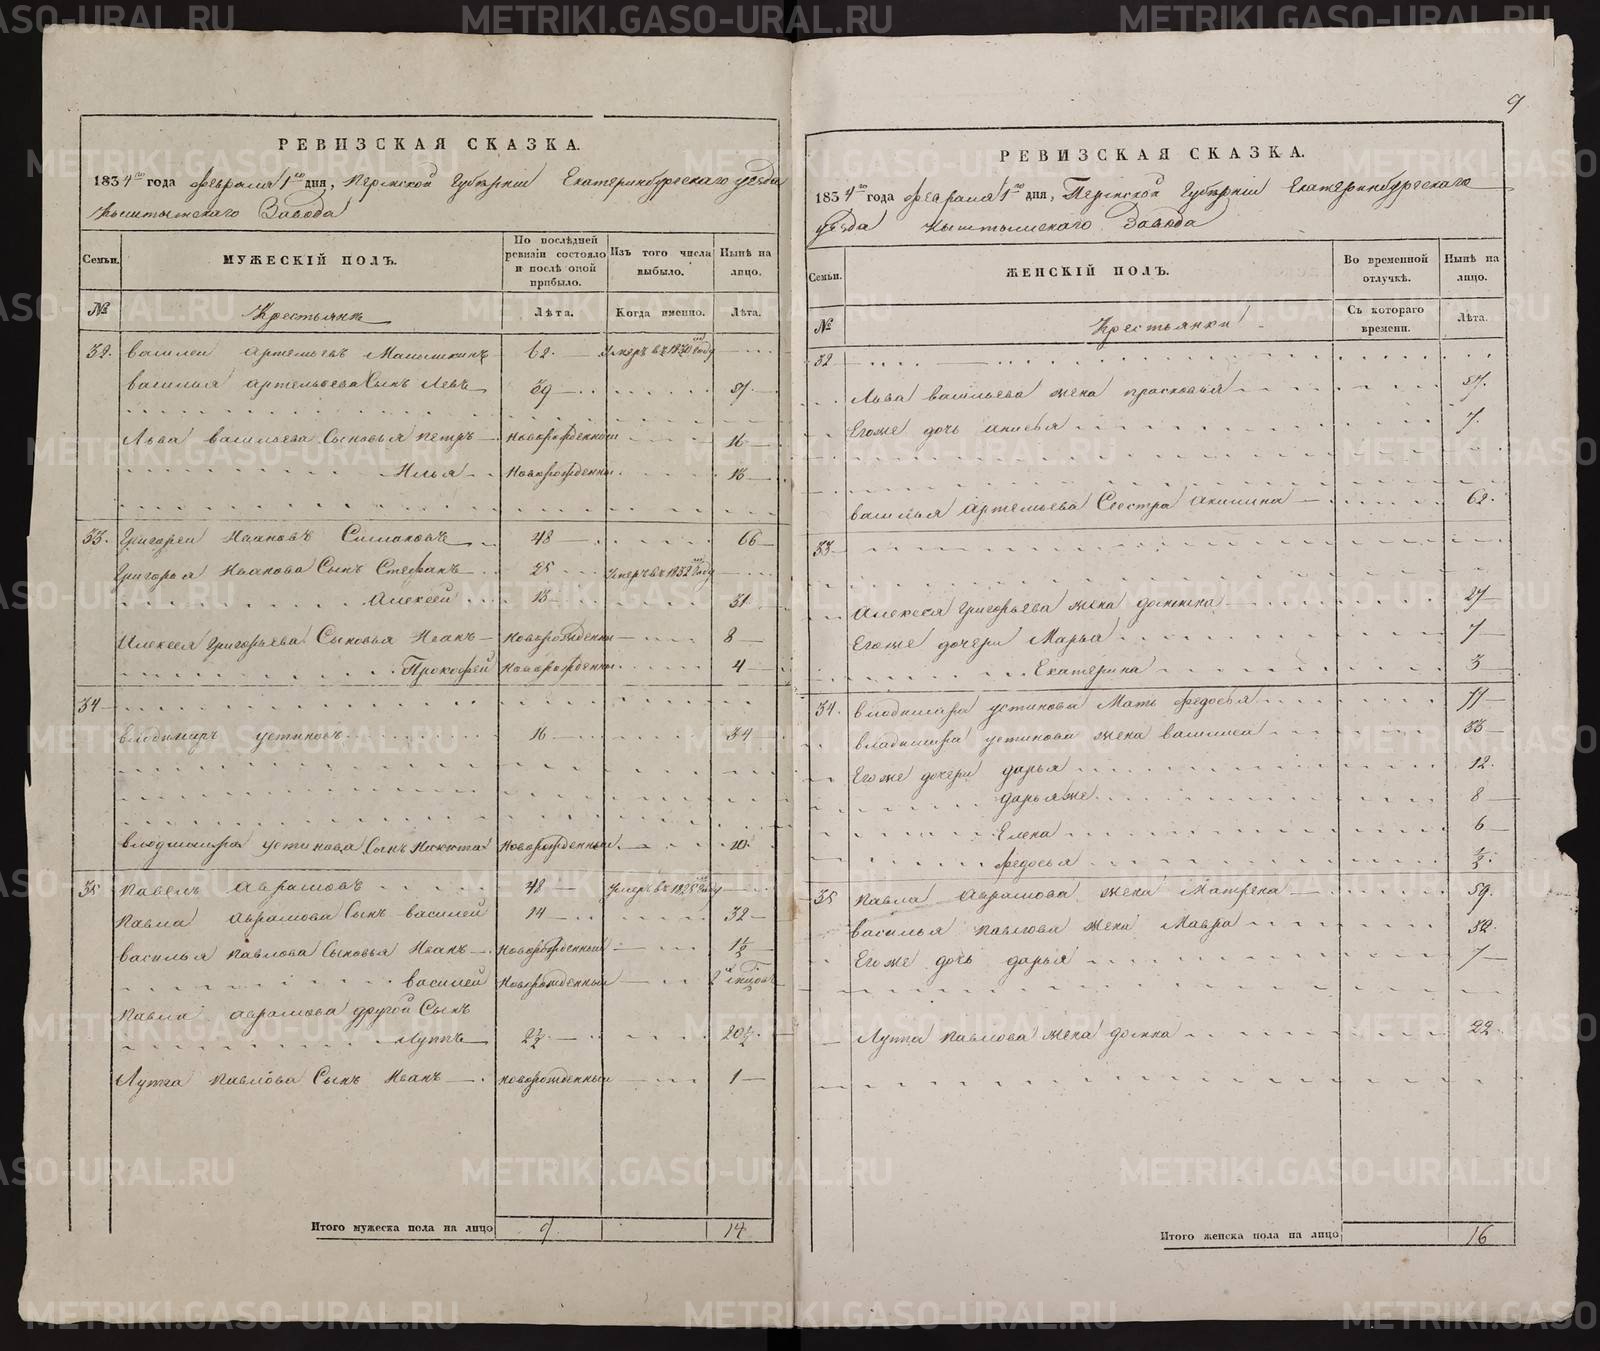 9
РЕВИЗСКАЯ СКАЗКА.
1834го года февраля 1го дня, Пермской Губерніи Екатеринбургскаго уѣзда
Кыштымскаго Завода
Семьи.
МУЖЕСКІЙ ПОЛЪ.
По послѣдней ревизіи состояло и послѣ оной прибыло.
Изъ того числа выбыло.
Нынѣ на лицо.
№
Крестьянъ
Лѣта.
Когда именно.
Лѣта.
32. Василеи Артемьевъ 62. Умеръ въ 1830 году
Василья Артемьева Сынъ Левъ 39 57
Льва Васильева Сыновья Петръ Новорожденный 16
Илья Новорожденны 13
33. Григореи Ивановъ Симаковъ 48 66
Григорья Иванова Сынъ Стефанъ 25 Умеръ въ 1832 году
Алексей 13 31
Алексея Григорьева Сыновья Иванъ Новорожденны 8
Прокофей Новорожденны 4
34
Владимиръ Устиновъ 16 34
Владимира Устинова Сынъ Никита Новорожденный 10
35 Павелъ Аврамовъ 48 Умеръ в 1825 году
Павла Аврамова Сынъ Василей 14 32
Василья Павлова Сыновья Иванъ Новорожденный 1½
Василей Новорожденный
Павла Аврамова другой Сынъ
Луппъ 2½ 20½
Луппа Павлова Сынъ Иванъ новорожденный 1
Итого мужеска пола на лицо 9 14
РЕВИЗСКАЯ СКАЗКА.
1834го года февраля 1го дня, Пермской Губерніи Екатеринбургскаго
уѣзда Кыштымскаго Завода
Семьи.
ЖЕНСКІЙ ПОЛЪ.
Во временной отлучкѣ.
Нынѣ на лицо.
№
Крестьянки
Съ котораго времени.
Лѣта.
32
Льва Васильева жена Прасковья 57.
Егоже дочь Анисья 7.
Василья Артемьева Сестра Акилина 62.
33
Алексея Григорьева жена Домника 27
Егоже дочери Марья 7
Екатерина 3
34. Владимира Устинова Мать Федосья 71
Владимира Устинова жена Василиса 33
Егоже дочери Дарья 12.
Дарья же 8
Елена 6
Федосья ½.
35 Павла Аврамова жена Матрена 59.
Василья Павлова жена Мавра 32.
Егоже дочь Дарья 7
Луппа Павлова жена Домна 22
Итого женска пола на лицо 16
METRIKI.GASO-URAL.RU